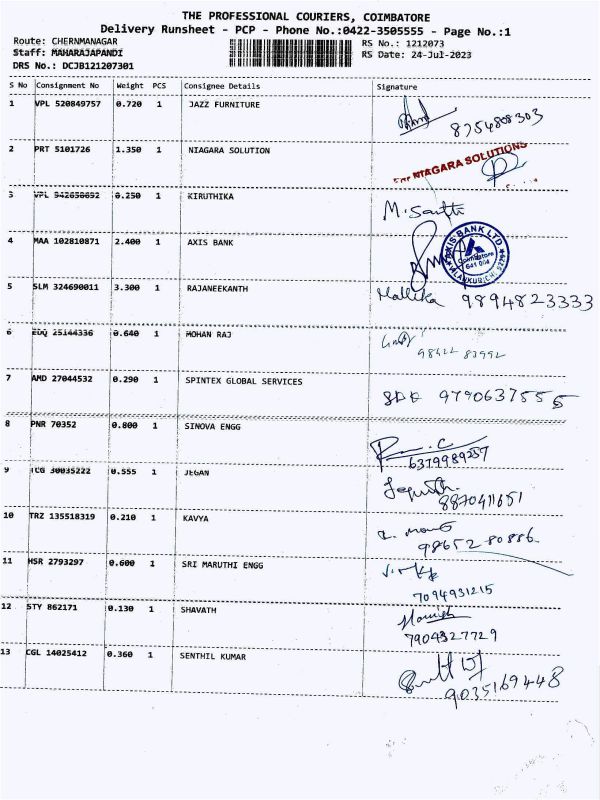 THE PROFESSIONAL COURIERS, COIMBATORE
Delivery Runsheet - PCP - Phone No.:0422-3505555 - Page No.:1
Route: CHERNMANAGAR RS No.: 1212073
Staff: MAHARAJAPANDI RS Date: 24-Jul-2023
DRS No.: DCJB121207301
S No Consignment No Weight PCS Consignee Details Signature
1 VPL 520849757 0.720 1 JAZZ FURNITURE
8754808303
2 PRT 5101726 1.350 1 NIAGARA SOLUTION
NIAGARA SOLUTIONS
3 VPL 542650692 0.250 1 KIRUTHIKA
M. Santhi
4 MAA 102810871 2.400 1 AXIS BANK
AXIS BANK LTD
Coimbatore
5 SLM 324690011 3.300 1 RAJANEEKANTH
Mallika 9894823333
6 EDQ 25144336 0.640 1 MOHAN RAJ
98422 83992
7 AMD 27044532 0.290 1 SPINTEX GLOBAL SERVICES
9790637555
8 PNR 70352 0.800 1 SINOVA ENGG
6379989257
9 TCG 30035222 0.555 1 JEGAN
8870411651
10 TRZ 135518319 0.210 1 KAVYA
98652 80886
11 HSR 2793297 0.600 1 SRI MARUTHI ENGG
7094931215
12 STY 862171 0.130 1 SHAVATH
7904327729
13 CGL 14025412 0.360 1 SENTHIL KUMAR
9035169448